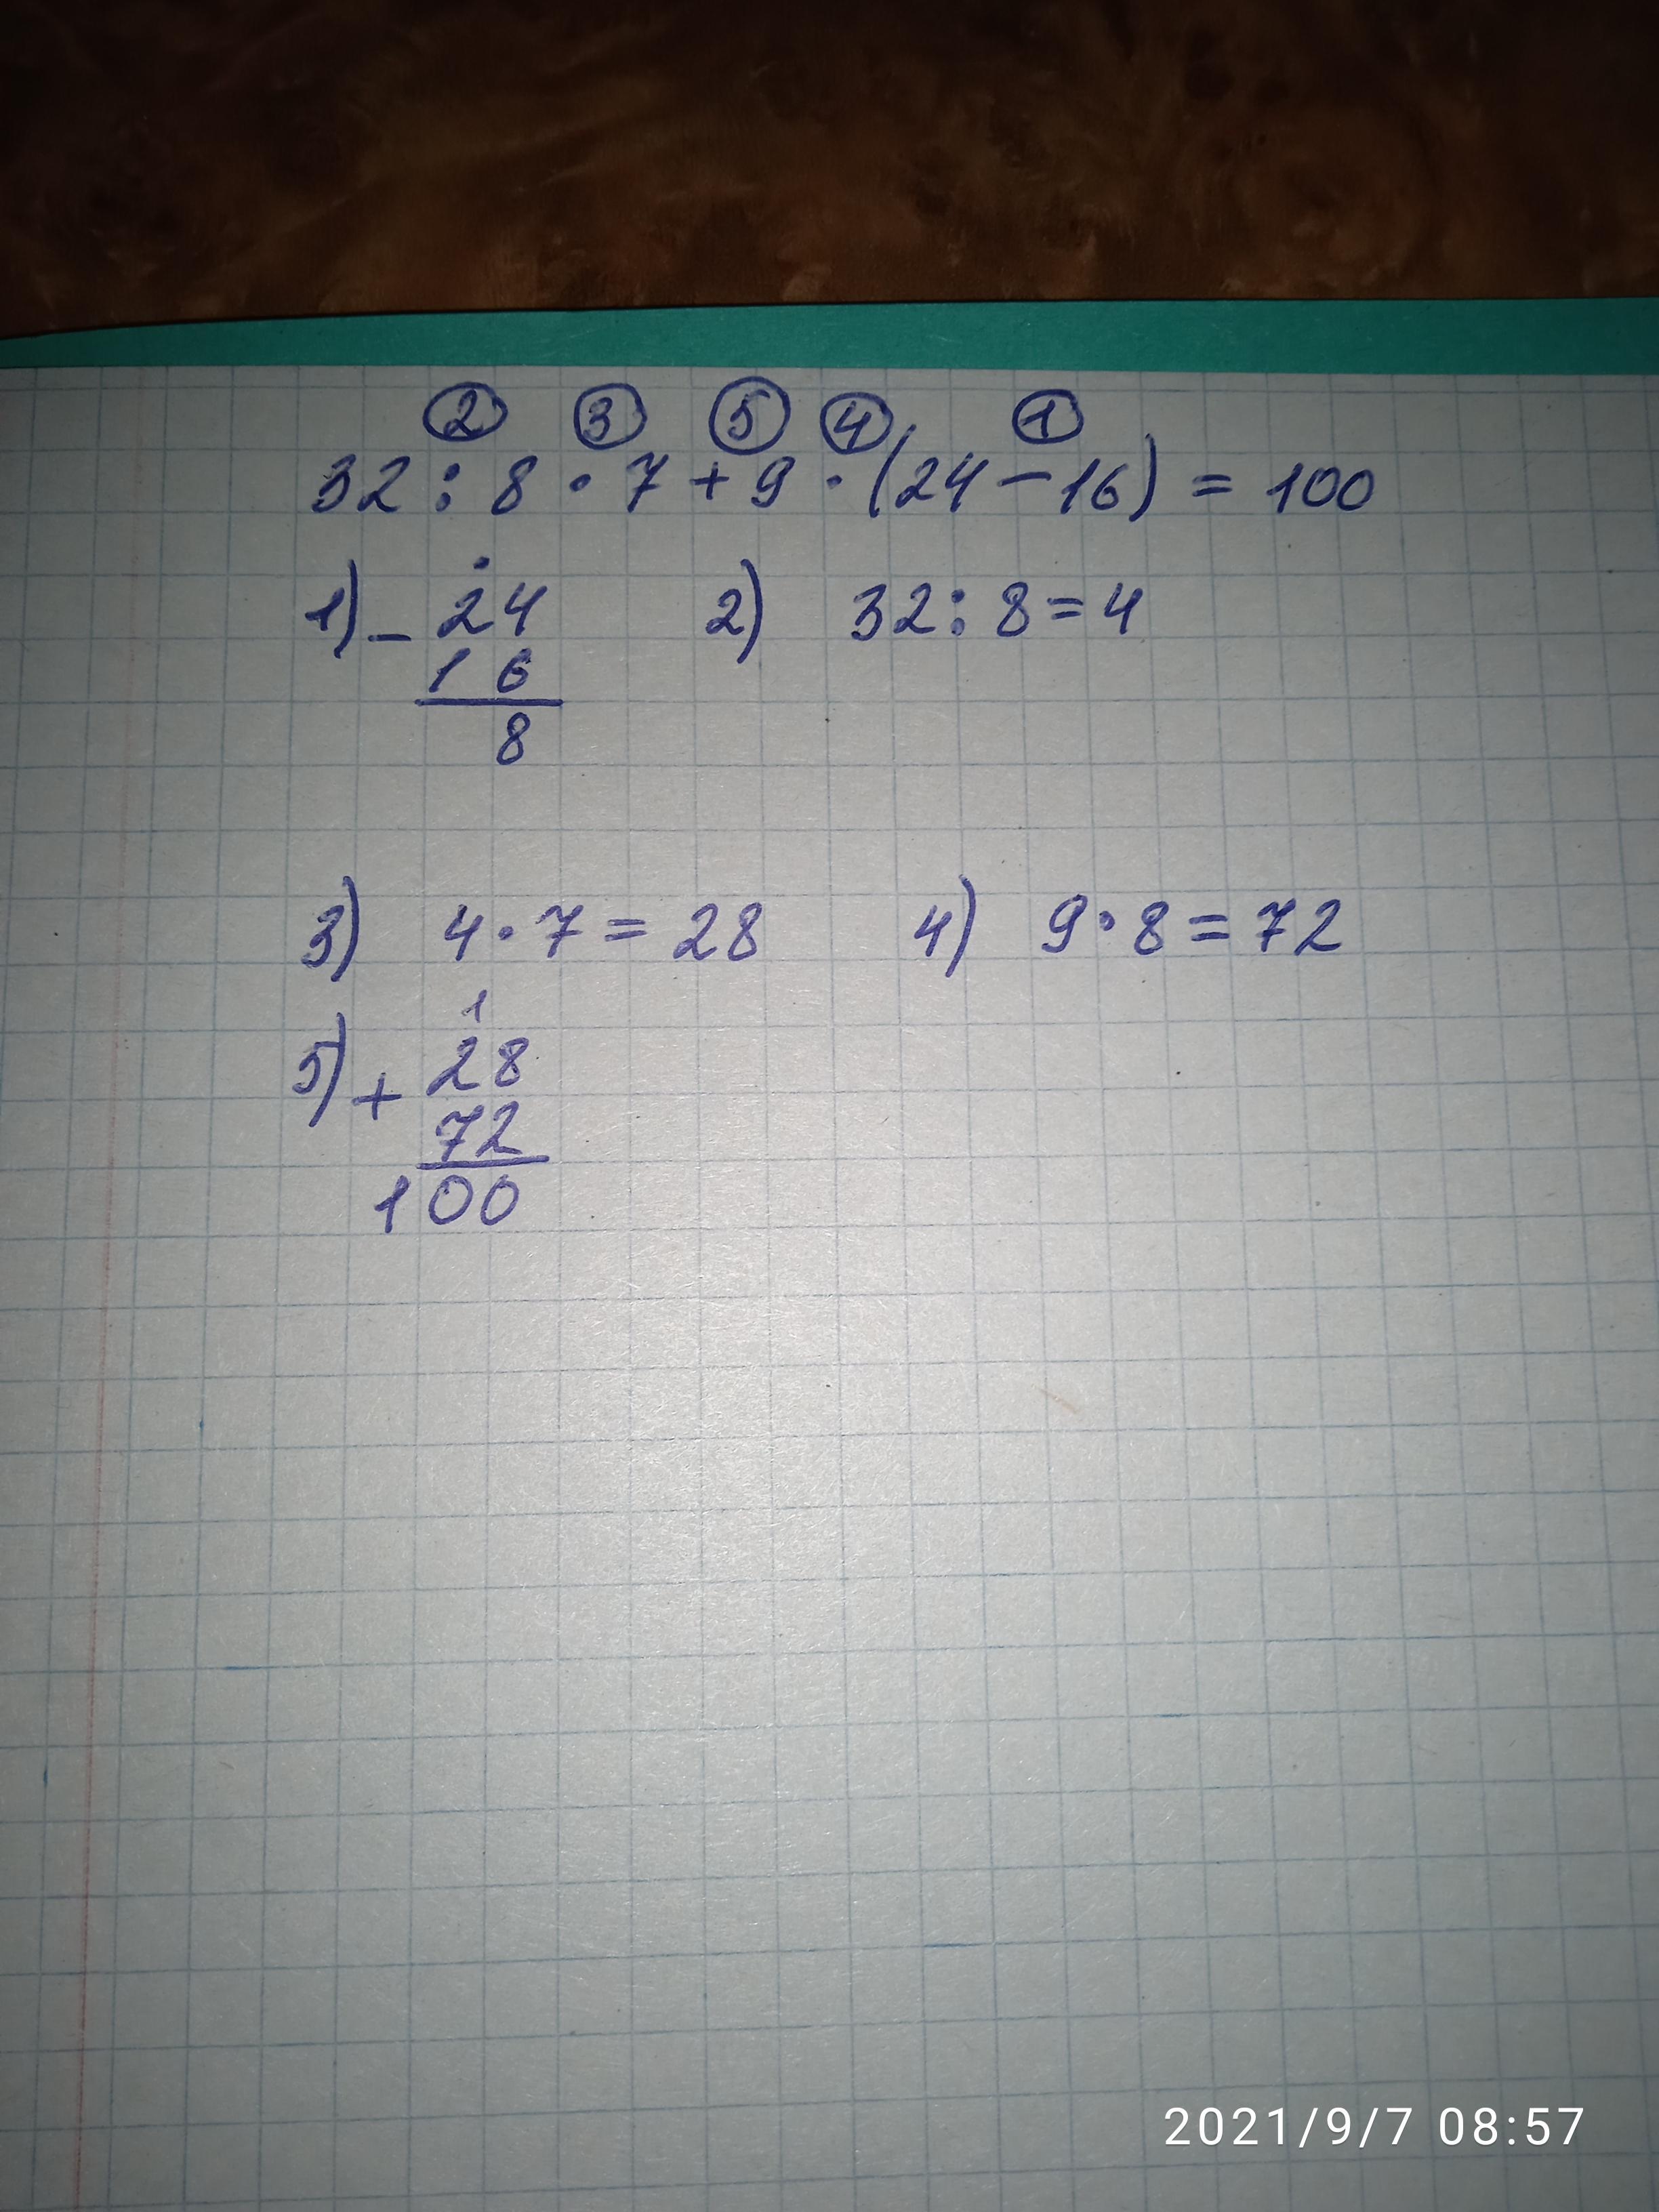 ② ③ ⑤ ④ ①
32 : 8 · 7 + 9 · (24 − 16) = 100
1) − 24 2) 32 : 8 = 4
16
8
3) 4 · 7 = 28 4) 9 · 8 = 72
1
5) + 28
72
100
2021/9/7 08:57